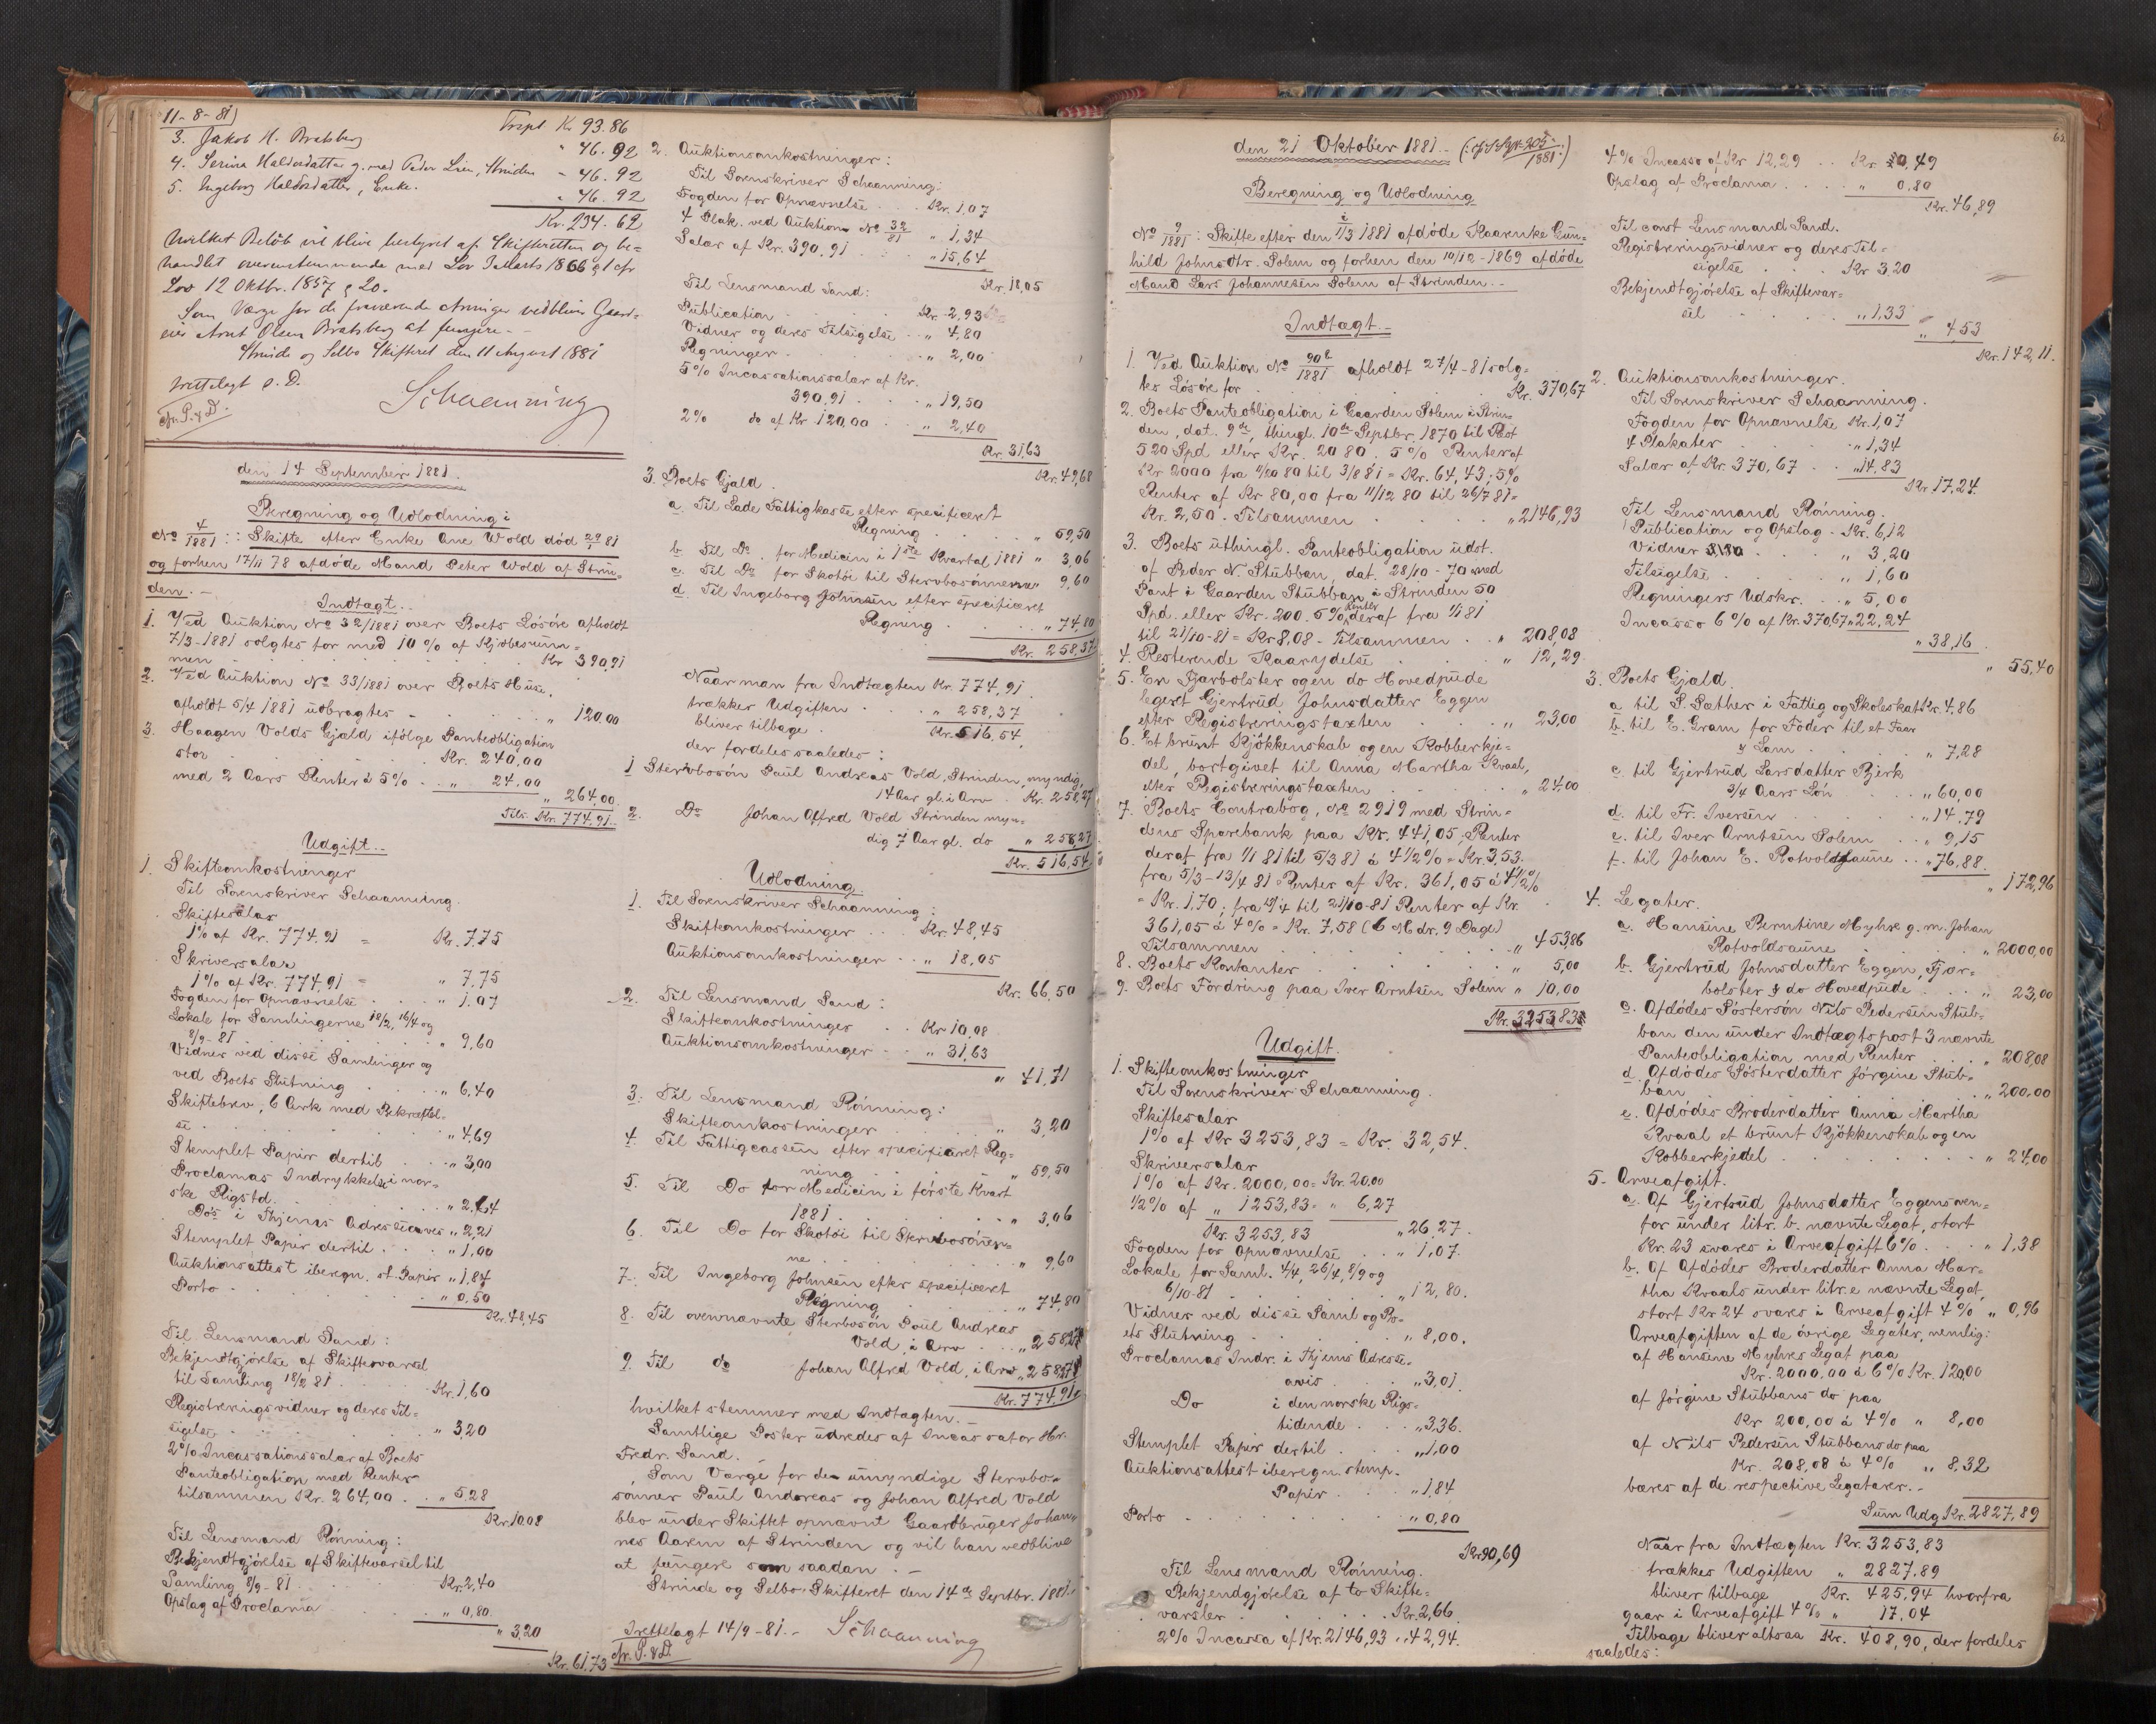 11-8-81)
Trspt Kr. 93.86
3. Jakob H. Bratsberg " 46.92
4. Serina Haldosdatter g. med Peder Lien, Strinden " 46.92
5. Ingeborg Haldosdatter, Enke. " 46.92
Kr. 234.62
hvilket Beløb vil blive bestyret af Skifteretten og be-
handlet overensstemmende med Lov 3 Marts 1866 § 1 cfr
Lov 12 Oktbr. 1857 § 20.
Som Værge for de fraværende Arvinger vedbliver Gaard-
eier Arnt Olsen Bratsberg at fungere. -
Strinde og Selbo Skifteret den 11 August 1881
Irettelagt s. D.
Schaanning
cfr. P. & D.
den 14 September 1881.
Beregning og Udlodning i
No 4/1881: Skifte efter Enke Ane Wold død 29/1 81
og forhen 17/11 78 afdøde Mand Peter Wold af Strin-
den. -
Indtægt.
1. Ved Auktion No 32/1881 over Boets Løsøre afholdt
7/3-1881 solgtes for med 10% af Kjøbesum-
men . . . Kr 390,91
2. Ved Auktion No 33/1881 over Boets Huse,
afholdt 5/4 1881 udbragtes . . " 120,00
3. Haagen Volds Gjæld ifølge Panteobligation
stor . . . Kr. 240,00
med 2 Aars Renter à 5% . . " 24,00
" 264,00
Tils. Kr. 774,91.
Udgift.
1. Skifteomkostninger
Til Sorenskriver Schaanning.
Skiftesalær
1% af Kr. 774,91 = Kr. 7,75
Skriversalær
1% af Kr. 774,91 = " 7,75
Fogden for Opnævnelse . . " 1,07
Lokale for Samlingerne 18/2, 16/4 og
8/9-81 . . . " 9,60
Vidner ved disse Samlinger og
ved Boets Slutning . . " 6,40
Skiftebrev, 6 Ark med Bekræftel-
se . . . " 4,69
Stemplet Papir dertil . . " 3,00
Proclamas Indrykkelse i nor-
ske Rigstd. . . . " 2,64
Do's i Thjems Adresseavis " 2,21
Stemplet Papir dertil . . " 1,00
Auktionsattest iberegn. st. Papir " 1,84
Porto . . . " 0,50
Kr. 48,45
Til Lensmand Sand:
Bekjendtgjørelse af Skiftevarsel
til Samling 18/2 81 . . Kr. 1,60
Registreringsvidner og deres Til-
sigelse . . . " 3,20
2% Incassationssalær af Boets
Panteobligation med Renter
tilsammen Kr. 264,00 . . " 5,28
Kr. 10,08
Til Lensmand Rønning:
Bekjendtgjørelse af Skiftevarsel til
Samling 8/9-81 . . Kr. 2,40
Opslag af Proclama . . " 0,80.
" 3,20
Kr. 61,73
2. Auktionsomkostninger:
Til Sorenskriver Schaanning:
Fogden for Opnævnelse . . Kr. 1,07
4 Plak. ved Auktion No 32/81 " 1,34
Salær af Kr. 390,91 . . " 15,64
Kr. 18,05
Til Lensmand Sand:
Publication . . . Kr. 2,93
Vidner og deres Tilsigelse . . " 4,80
Regninger . . . " 2,00
5% Incassationssalær af Kr.
390,91 . . . " 19,50
2% do af Kr. 120,00 . . " 2,40
Kr. 31,63
Kr. 49,68
3. Boets Gjæld.
a. Til Lade Fattigkasse efter specificeret
Regning . . . " 59,50
b. Til Do. for Medicin i 1ste Kvartal 1881 " 3,06
c. Til Do for Skotøi til Stervbosønnerne " 9,60
d. Til Ingeborg Johnsen efter specificeret
Regning . . . " 74,80
Kr. 258,37
Naar man fra Indtægten Kr. 774,91.
trækker Udgiften . . " 258,37
bliver tilbage . . Kr. 516,54,
der fordeles saaledes:
1 Stervbosøn Paul Andreas Vold, Strinden, myndig,
14 Aar gl. i Arv . Kr. 258,27
2. Do Johan Alfred Vold Strinden myn-
dig 7 Aar gl. do " 258,27
Kr. 516,54.
Udlodning:
1. Til Sorenskriver Schaanning:
Skifteomkostninger . . . Kr. 48,45
Auktionsomkostninger . . " 18,05
Kr. 66,50
2. Til Lensmand Sand:
Skifteomkostninger . . Kr 10,08
Auktionsomkostninger . . " 31,63
" 41,71
3. Til Lensmand Rønning:
Skifteomkostninger . . " 3,20
4. Til Fattigcassen efter specificeret Reg-
ning . . . " 59,50
5. Til Do for Medicin i første Kvart
1881 . . . " 3,06
6. Til Do for Skotøi til Stervbosønner-
ne . . . " 9,60
7. Til Ingeborg Johnsen efter specificeret
Regning . . . " 74,80
8. Til ovennævnte Stervbosøn Paul Andreas
Vold, i Arv . . " 258,27
9. Til do Johan Alfred Vold, i Arv " 258,27
Kr. 774,91
hvilket stemmer med Indtægten. -
Samtlige Poster udredes af Incassator Hr.
Fredr. Sand. -
Som Værge for de umyndige Stervbo-
sønner Paul Andreas og Johan Alfred Vold
blev under Skiftet opnævnt Gaardbruger Johan-
nes Aarem af Strinden og vil han vedblive
at fungere som saadan. -
Strinde og Selbo Skifteret den 14de Septbr. 1881.
Irettelagt 14/9-81. - Schaanning
cfr. P. & D.
65.
den 21 Oktober 1881. -
Beregning og Udlodning
i
No 9/1881: Skifte efter den 1/3 1881 afdøde Kaarenke Gun-
hild Johnsdtr. Solem og forhen den 10/12-1869 afdøde
Mand Lars Johannesen Solem af Strinden. -
Indtægt. -
1. Ved Auktion No 90b/1881 afholdt 27/4-81 solg-
tes Løsøre for . . . Kr. 370,67
2. Boets Panteobligation i Gaarden Solem i Strin-
den, dat. 9de, thingl. 10de Septbr. 1870 til Rest
520 Spd eller Kr. 2080. 5% Renter af
Kr 2000 fra 11/12 80 til 3/8 81 = Kr. 64,43; 5%
Renter af Kr 80,00 fra 11/12 80 til 26/7 81 =
Kr. 2,50. Tilsammen . . . " 2146,93
3. Boets uthingl. Panteobligation udst.
af Peder N. Stubban, dat. 28/10-70 med
Pant i Gaarden Stubban i Strinden 50
Spd. eller Kr. 200. 5% Renter deraf fra 1/1 81
til 21/10-81 = Kr 8,08. Tilsammen . . " 208,08
4. Resterende Kaarydelse . . " 12,29.
5. En Fjærbolster og en do Hovedpude
legeret Gjertrud Johnsdatter Eggen
efter Registreringstaxten . . . " 23,00
6. Et brunt Kjøkkenskab og en Kobberkje-
del, bortgivet til Anna Martha Kvaal,
efter Registreringstaxten . . . " 24,00
7. Boets Contrabog, No 2919 med Strin-
dens Sparebank paa Kr. 441,05, Renter
deraf fra 1/1 81 til 5/3 81 à 4 1/2% = Kr. 3,53.
fra 5/3-13/4 81 Renter af Kr. 361,05 à 4 1/2%
= Kr. 1,70; fra 13/4 til 21/10-81 Renter af Kr.
361,05 à 4% = Kr. 7,58 (6 Mdr. 9 Dage)
Tilsammen . . . " 453,86
8. Boets Kontanter . . . " 5,00
9. Boets Fordring paa Iver Arntsen Solem " 10,00
Kr. 3253,83
Udgift.
1. Skifteomkostninger
Til Sorenskriver Schaanning.
Skiftesalær
1% af Kr 3253,83 = Kr. 32,54.
Skriversalær
1% af Kr. 2000,00 = Kr. 20,00
1/2% af " 1253,83 = " 6,27
Kr. 3253,83 " 26,27.
Fogden for Opnævnelse . . " 1,07.
Lokale for Saml. 4/4, 26/4, 8/9 og
6/10-81 . . . " 12,80.
Vidner ved disse Saml og Bo-
ets Slutning . . . " 8,00.
Proclamas Indr. i Thjems Adresse-
avis . . . " 3,01.
Do i den norske Rigs-
tidende . . . " 3,36.
Stemplet Papir dertil . . " 1,00
Auktionsattest iberegn. stemp.
Papir . . . " 1,84
Porto . . . " 0,80
Kr. 90,69
Til Lensmand Rønning.
Bekjendgjørelse af to Skifte-
varsler . . . Kr. 2,66
2% Incasso af Kr. 2146,93 " 42,94.
4% Incasso af Kr 12,29 . . Kr. 0,49
Opslag af Proclama . . . " 0,80
Kr. 46,89
Til const Lensmand Sand.
Registreringsvidner og deres Til-
sigelse . . . Kr 3,20
Bekjendtgjørelse af Skiftevar-
sel . . . " 1,33
" 4,53
Kr. 142,11.
2. Auktionsomkostninger.
Til Sorenskriver Schaanning.
Fogden for Opnævnelse Kr. 1,07
4 Plakater . . . " 1,34
Salær af Kr. 370,67 . . " 14,83
Kr. 17,24.
Til Lensmand Rønning.
Publication og Opslag . Kr. 6,12
Vidner . . . " 3,20
Tilsigelse . . . " 1,60
Regningers Udskr. . . " 5,00
Incasso 6% af Kr. 370,67 " 22,24
" 38,16.
" 55,40
3. Boets Gjæld.
a til S. Sæther i Fattig og Skoleskat Kr. 4,86
b. til E. Gram for Foder til et Faar
& Lam . . . " 7,28
c. til Gjertrud Larsdatter Bjerk
3/4 Aars Løn . . . " 60,00
d. til Fr. Iversen . . . " 14,79
e. til Iver Arntsen Solem . . " 9,15
f. til Johan E. Rotvoldsaune . . " 76,88.
" 172,96
4. Legater.
a. Hansine Berntine Myhre g. m. Johan
Rotvoldsaune . . . " 2000,00
b. Gjertrud Johnsdatter Eggen, Fjær-
bolster & do Hovedpude . . " 23,00
c. Afdødes Søstersøn Nils Pedersen Stub-
ban den under Indtægtspost 3 nævnte
Panteobligation med Renter . . " 208,08
d. Afdødes Søsterdatter Jørgine Stub-
ban . . . " 200,00
e. Afdødes Broderdatter Anna Martha
Kvaal et brunt Kjøkkenskab og en
Kobberkjedel . . . " 24,00
5. Arveafgift.
a. Af Gjertrud Johnsdatter Eggens oven-
for under litr. b. nævnte Legat, stort
Kr. 23 svares i Arveafgift 6% . . " 1,38
b. Af Afdødes Broderdatter Anna Mar-
tha Kvaals under litr. e nævnte Legat,
stort Kr 24 svares i Arveafgift 4% " 0,96
Arveafgiften af de øvrige Legater, nemlig:
af Hansine Myhres Legat paa
Kr. 2000,00 à 6% Kr. 120,00
af Jørgine Stubbans do paa
Kr 200,00 à 4% " 8,00
af Nils Pedersen Stubbans do paa
Kr. 208,08 à 4% " 8,32
bæres af de respective Legatarer. -
Sum Udg Kr. 2827,89
Naar fra Indtægten Kr. 3253,83
trækkes Udgiften " 2827,89
bliver tilbage Kr. 425,94 hvorfra
gaar i Arveafgift 4% " 17,04
Tilbage bliver altsaa Kr. 408,90, der fordeles
saaledes: